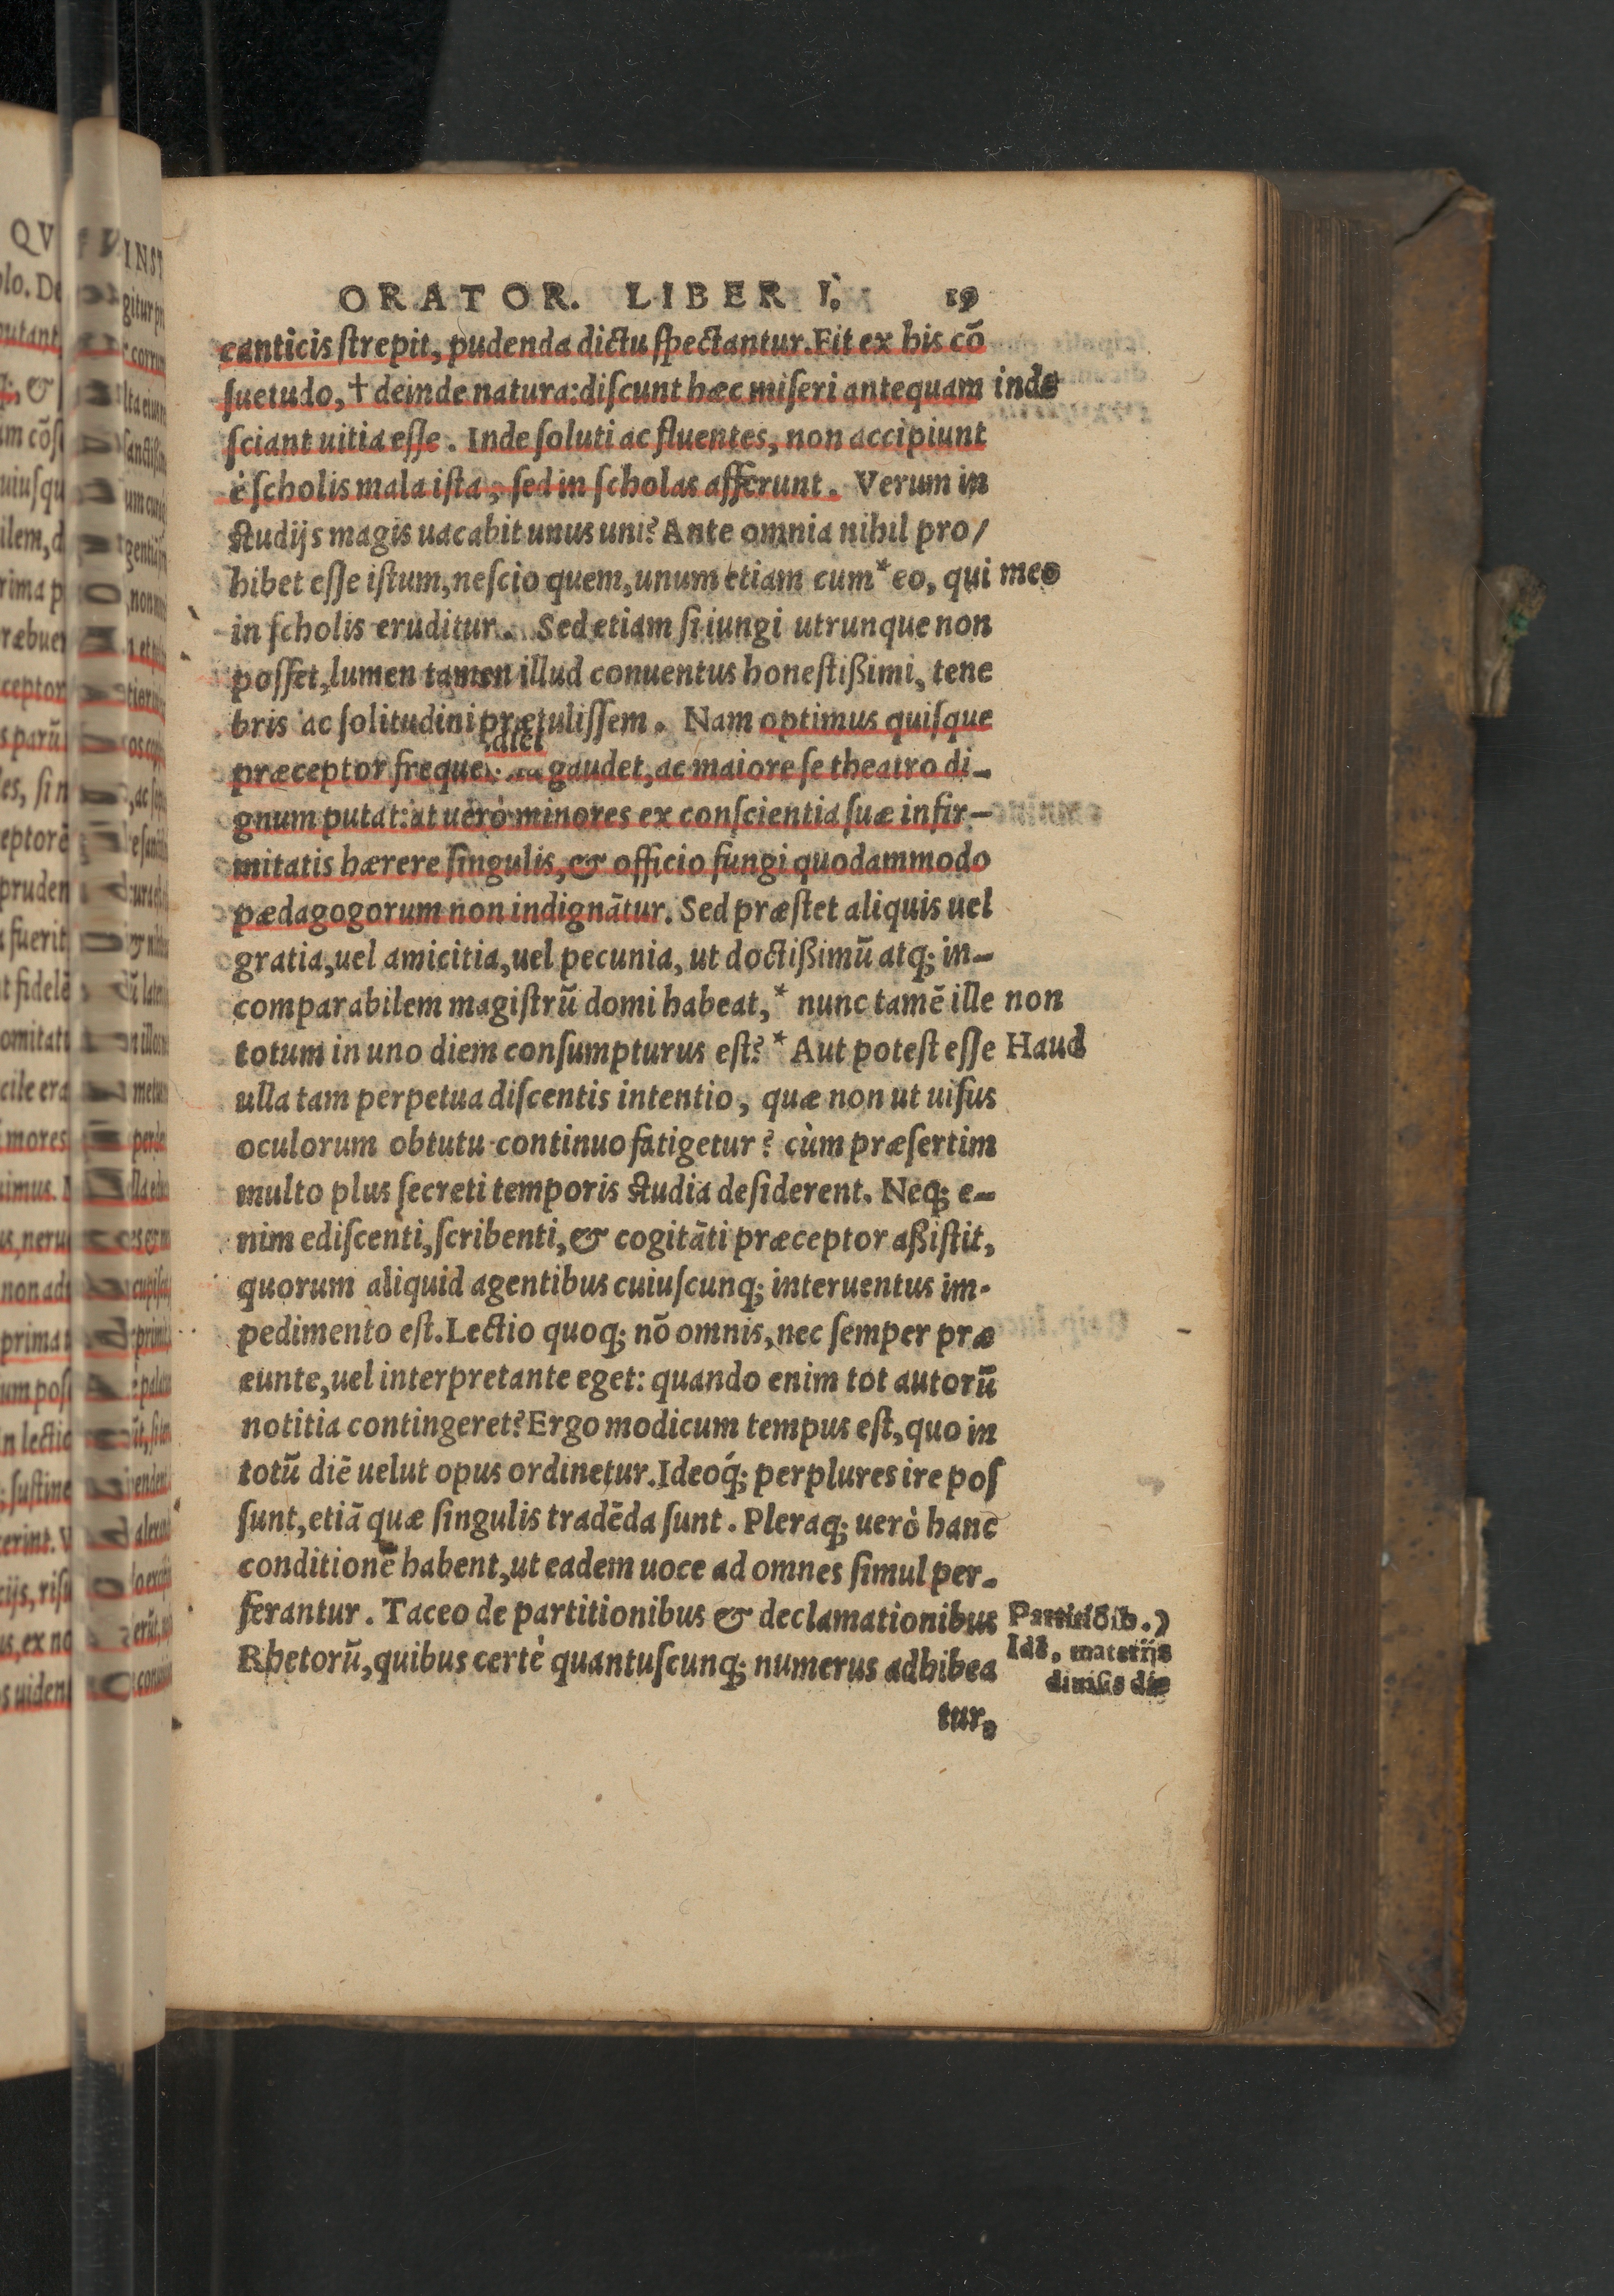 ORATOR. LIBER I. 19
canticis ſtrepit, pudenda dictu ſpectantur. Fit ex his cō
ſuetudo, † deinde natura: diſcunt hæc miſeri antequam inde
ſciant uitia eſſe. Inde ſoluti ac fluentes, non accipiunt
è ſcholis mala iſta, ſed in ſcholas afferunt. Verum in
ſtudijs magis uacabit unus uni? Ante omnia nihil pro/
hibet eſſe iſtum, neſcio quem, unum etiam cum * eo, qui meo
in ſcholis eruditur. Sed etiam ſi iungi utrunque non
poſſet, lumen tamen illud conuentus honeſtißimi, tene
bris ac ſolitudini prætuliſſem. Nam optimus quiſque
præceptor gaudet, ac maiore ſe theatro di-
gnum putat: at uerò minores ex conſcientia ſuæ infir-
mitatis hærere ſingulis, & officio fungi quodammodo
pædagogorum non indignātur. Sed præſtet aliquis uel
gratia, uel amicitia, uel pecunia, ut doctißimū atq; in-
comparabilem magiſtrū domi habeat, * nunc tamē ille non
totum in uno diem conſumpturus eſt? * Aut poteſt eſſe Haud
ulla tam perpetua diſcentis intentio, quæ non ut uiſus
oculorum obtutu continuo fatigetur? cùm præſertim
multo plus ſecreti temporis ſtudia deſiderent. Neq; e-
nim ediſcenti, ſcribenti, & cogitāti præceptor aßiſtit,
quorum aliquid agentibus cuiuſcunq; interuentus im-
pedimento eſt. Lectio quoq; nō omnis, nec ſemper præ
eunte, uel interpretante eget: quando enim tot autorū
notitia contingeret? Ergo modicum tempus eſt, quo in
totū diē uelut opus ordinetur. Ideoq́; per plures ire poſ
ſunt, etiā quæ ſingulis tradēda ſunt. Pleraq; uerò hanc
conditionē habent, ut eadem uoce ad omnes ſimul per-
ferantur. Taceo de partitionibus & declamationibus Partitiōib.)
Rhetorū, quibus certè quantuſcunq; numerus adhibea
materijs
diuiſis
tur.